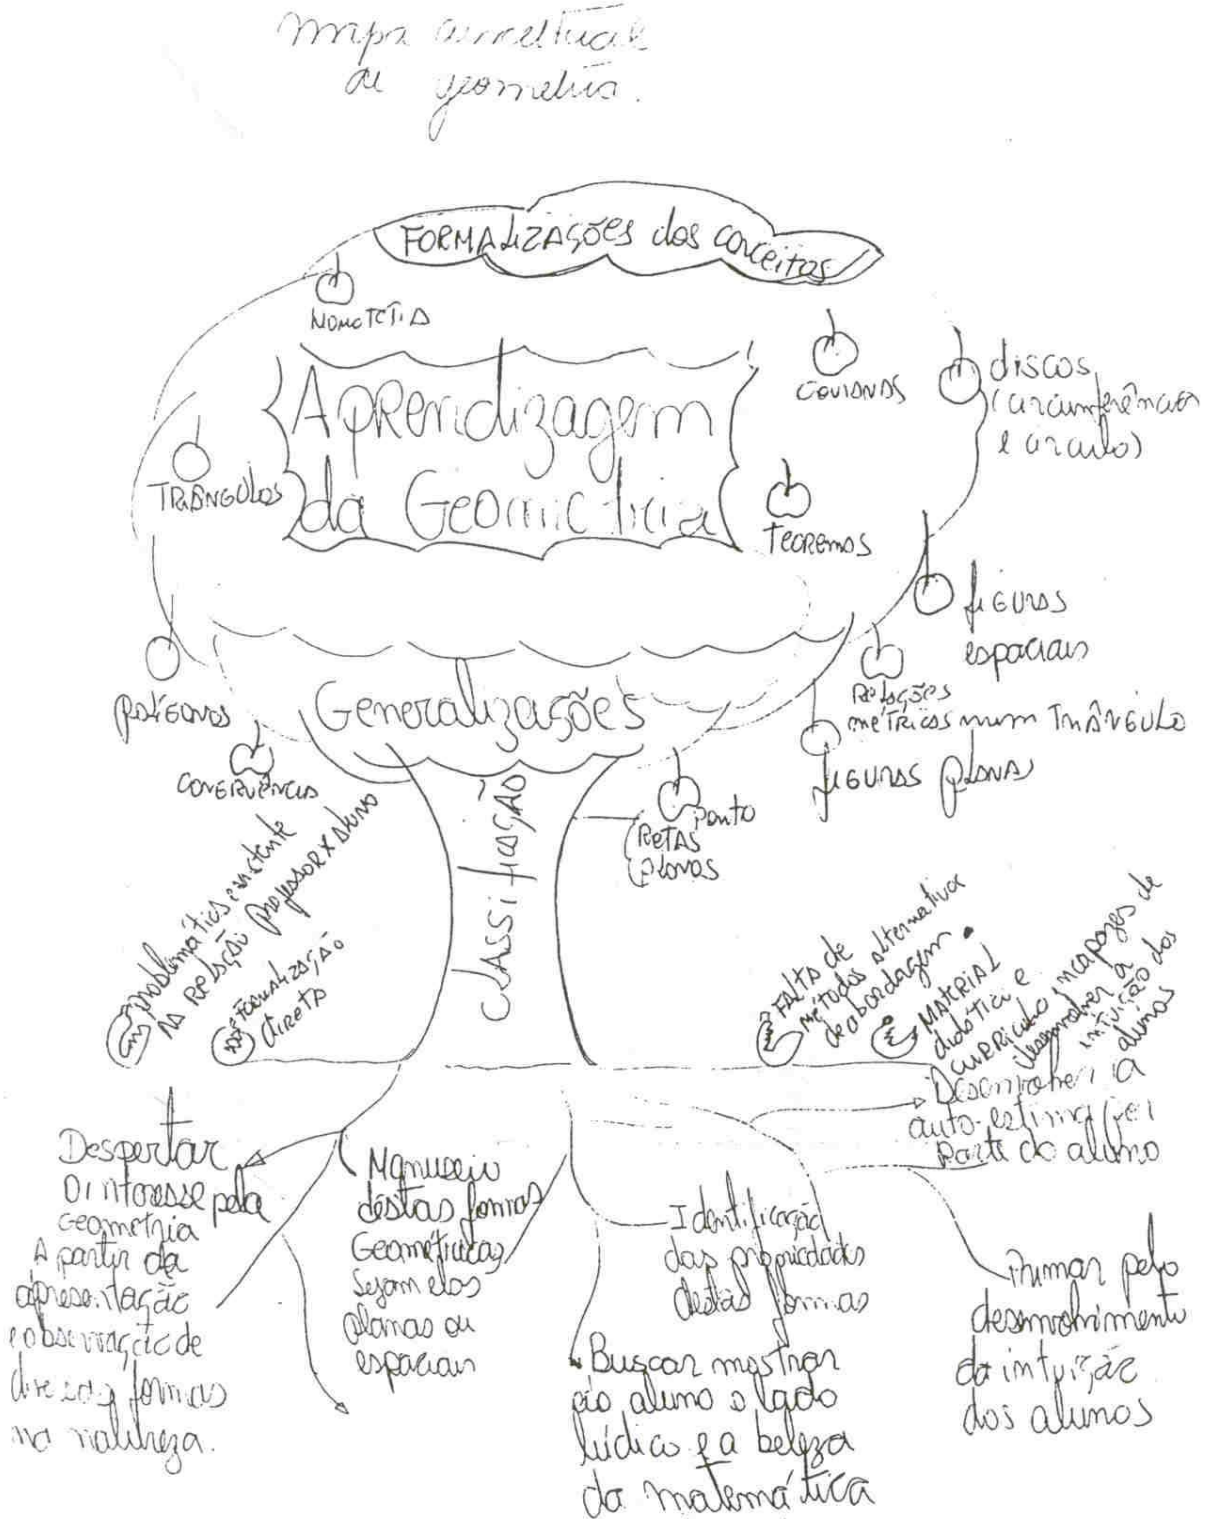 mapa conceitual
de geometria.
FORMALIZAÇÕES dos conceitos
HOMOTETIA
Aprendizagem
da Geometria
CEVIANAS
discos
(circunferências
e círculos)
TRIÂNGULOS
TEOREMAS
figuras
espaciais
POLÍGONOS
Generalizações
RELAÇÕES
MÉTRICAS num TRIÂNGULO
FIGURAS PLANAS
CONGRUÊNCIA
Ponto
RETAS
PLANOS
CLASSIFICAÇÃO
problemática existente
NA RELAÇÃO professor X aluno
FORMALIZAÇÃO
direta
FALTA de
métodos alternativa
de abordagem.
MATERIAL
didático e
CURRÍCULO incapazes de
desenvolver a
intuição dos
alunos
Desenvolver a
auto-estima por
parte do aluno
Despertar
o interesse pela
Geometria
A partir da
apresentação
e observação de
diversas formas
na natureza.
Manuseio
destas formas
Geométricas
sejam elas
planas ou
espaciais
Identificação
das propriedades
destas formas
Primar pelo
desenvolvimento
da intuição
dos alunos
Buscar mostrar
ao aluno o lado
lúdico e a beleza
da matemática